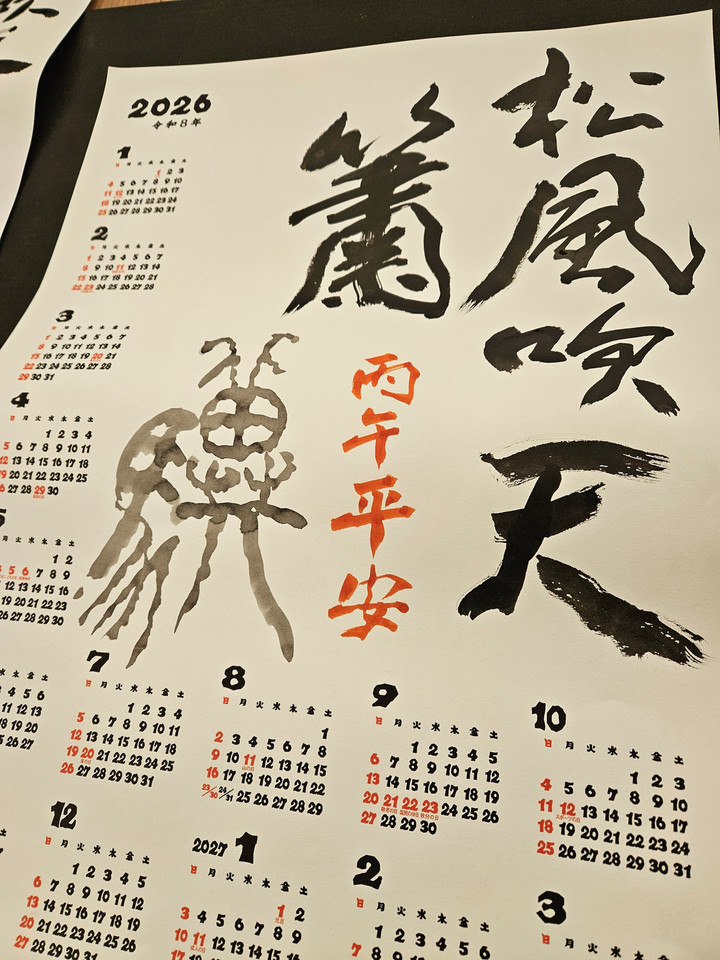 松風吹天
簫
丙午平安
2026
令和8年
1
日 月 火 水 木 金 土
1 2 3
4 5 6 7 8 9 10
11 12 13 14 15 16 17
18 19 20 21 22 23 24
25 26 27 28 29 30 31
2
日 月 火 水 木 金 土
1 2 3 4 5 6 7
8 9 10 11 12 13 14
15 16 17 18 19 20 21
22 23 24 25 26 27 28
3
日 月 火 水 木 金 土
1 2 3 4 5 6 7
8 9 10 11 12 13 14
15 16 17 18 19 20 21
22 23 24 25 26 27 28
29 30 31
4
日 月 火 水 木 金 土
1 2 3 4
5 6 7 8 9 10 11
12 13 14 15 16 17 18
19 20 21 22 23 24 25
26 27 28 29 30
5
月 火 水 木 金 土
1 2
4 5 6 7 8 9
12 13 14 15 16
18 19 20 21 22 23
26 27 28 29 30
木 金 土
4 5 6
11 12 13
18 19 20
25 26 27
7
日 月 火 水 木 金 土
1 2 3 4
5 6 7 8 9 10 11
12 13 14 15 16 17 18
19 20 21 22 23 24 25
海の日
26 27 28 29 30 31
8
日 月 火 水 木 金 土
1
2 3 4 5 6 7 8
9 10 11 12 13 14 15
山の日
16 17 18 19 20 21 22
23/30 24/31 25 26 27 28 29
9
日 月 火 水 木 金 土
1 2 3 4 5
6 7 8 9 10 11 12
13 14 15 16 17 18 19
20 21 22 23 24 25 26
敬老の日 国民の休日 秋分の日
27 28 29 30
10
日 月 火 水 木 金 土
1 2 3
4 5 6 7 8 9 10
11 12 13 14 15 16 17
スポーツの日
18 19 20 21 22 23 24
25 26 27 28 29 30 31
12
日 月 火 水 木 金 土
1 2 3 4 5
6 7 8 9 10 11 12
13 14 15 16 17 18 19
20 21 22 23 24 25 26
27 28 29 30 31
2027 1
日 月 火 水 木 金 土
1 2
元日
3 4 5 6 7 8 9
10 11 12 13 14 15 16
成人の日
17
2
日 月 火 水 木 金 土
1 2 3 4 5 6
7
3
日 月 火 水 木 金